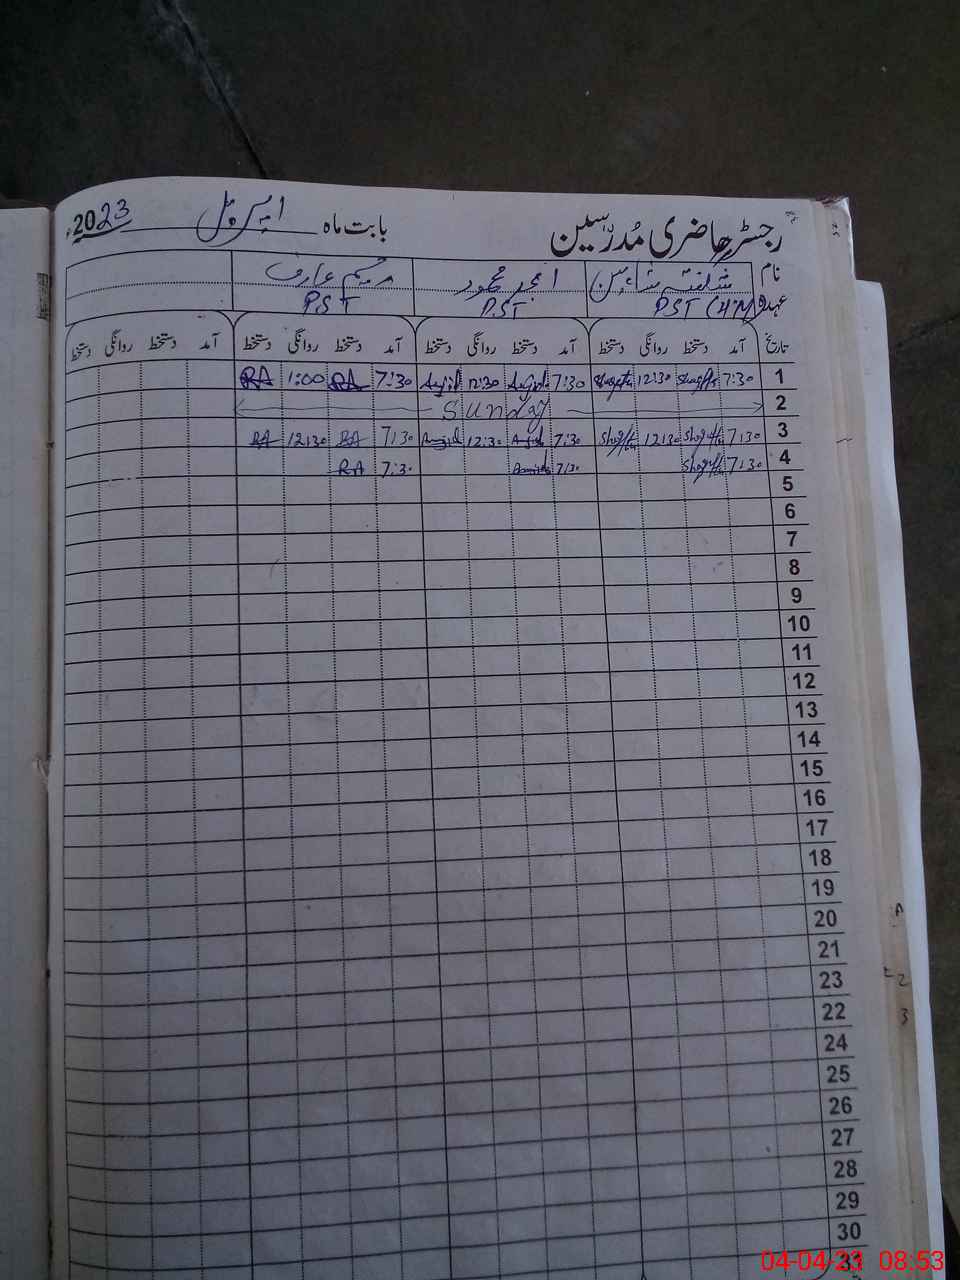 رجسٹر حاضری مدرسین بابت ماہ اپریل 2023ء
نام شگفتہ شاہین امجد محمود مریم عارف
عہدہ PST (H.M) PST PST
تاریخ آمد دستخط روانگی دستخط آمد دستخط روانگی دستخط آمد دستخط روانگی دستخط آمد دستخط روانگی دستخط
1 7:30 Shagufta 12:30 Shagufta 7:30 Amjid 12:30 Amjid 7:30 RA 1:00 RA
2 Sunday
3 7:30 Shagufta 12:30 Shagufta 7:30 Amjid 12:30 Amjid 7:30 RA 12:30 RA
4 7:30 Shagufta 7:30 Amjid 7:30 RA
5
6
7
8
9
10
11
12
13
14
15
16
17
18
19
20
21
23
22
24
25
26
27
28
29
30
31
04-04-23 08:53